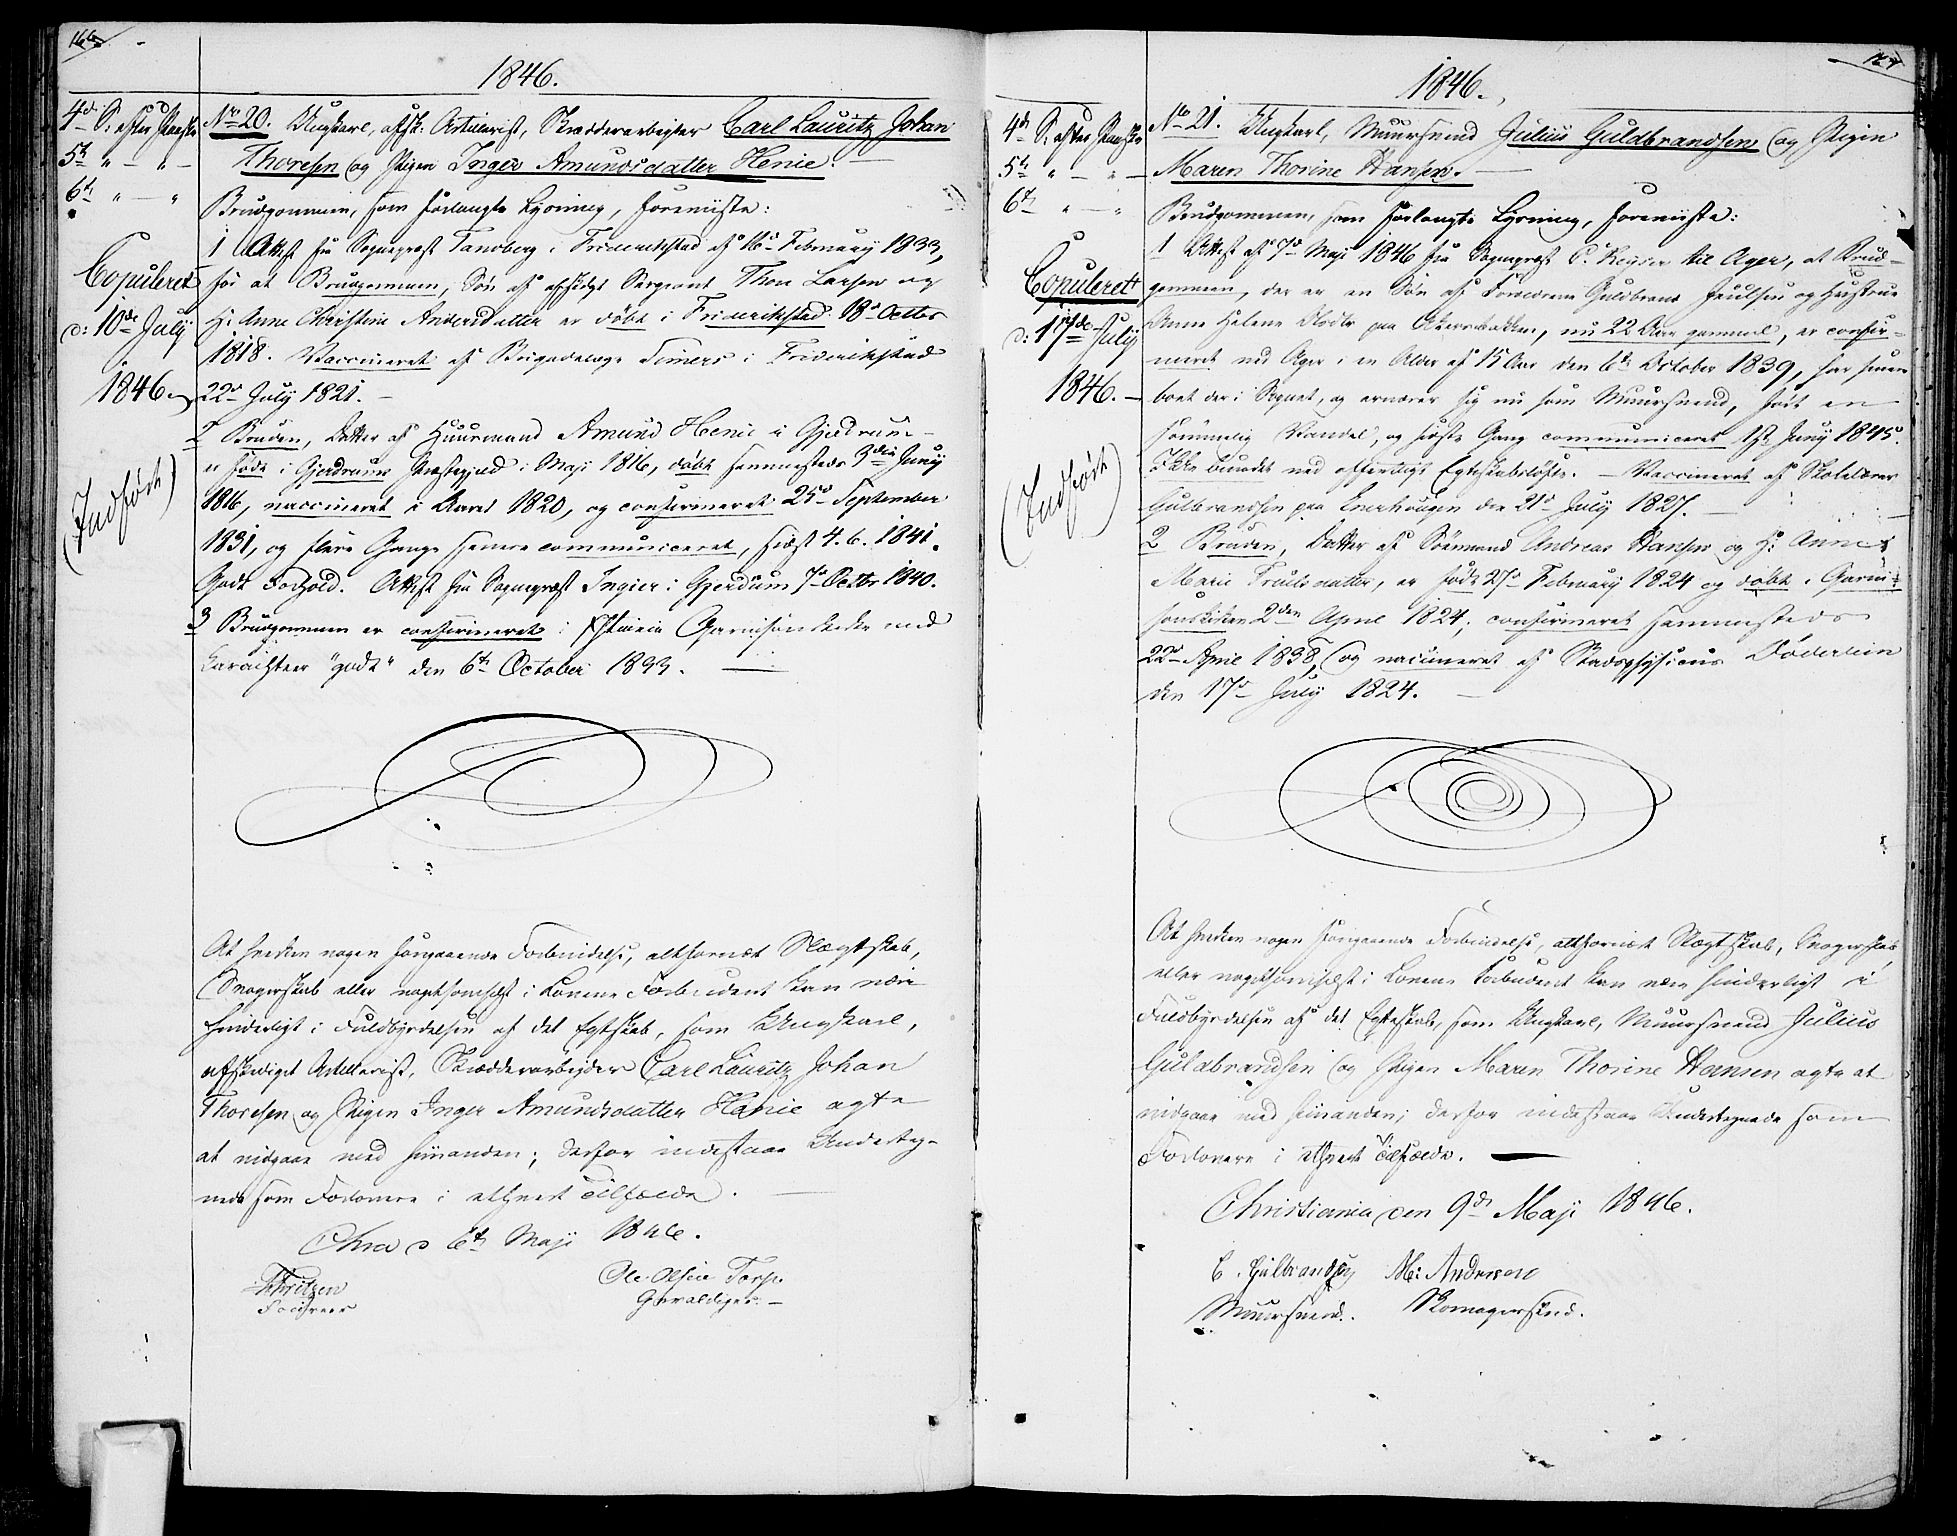 166
1846.
4de S: efter Paaske
5te " — " —
6te " — "
Copuleret
d: 10de July
1846.
(Indført)
No 20. Ungkarl, afsk: Artillerist, Skrædderarbeider Carl Lauritz Johan
Thoresen og Pigen Inger Amundsdatter Henie. —
Brudgommen, som forlangte Lysning, foreviiste:
1 Attest fra Sognepræst Tandberg i Frederikstad af 16de February 1833,
for at Brudgommen, Søn af afskediget Sergeant Thore Larsen og
H: Anne Christine Andersdatter er døbt i Frederikstad 18de Octbr
1818. Vaccineret af Brigadelæge Siemers i Frederikstad
22de July 1821. —
2 Bruden, Datter af Huusmand Amund Henie i Gjerdrum —
er født i Gjerdrums Præstegjeld i Maji 1816, døbt sammesteds 9den Juny
1816, vaccineret i Aaret 1820, og confirmeret 25de September
1831, og flere Gange senere communiceret, sidst 4. 6. 1841.
Godt Forhold. Attest fra Sognepræst Ingier i Gjerdrum 7de Octbr 1840.
3 Brudgommen er confirmeret i Garnisonskirke med
Karakteer "godt" den 6te October 1833. —
At hverken nogen foregaaende Forbindelse, altfornært Slægtskab,
Svogerskab eller nogetsomhelst i Lovene Forbudent kan være
hinderligt i Fuldbyrdelsen af det Egteskab, som Ungkarl,
afskediget Artillerist, Skrædderarbeider Carl Lauritz Johan
Thoresen og Pigen Inger Amundsdatter Hænie agte
at indgaae med hinanden; derfor indestaae Underteg-
nede som Forlovere i ethvert Tilfælde. —
Chra d 6te Maji 1846.
Ole Olsen Torp.
Gevaldiger. —
167
1846.
4de S: efter Paaske
5te " — " —
6te " — "
Copuleret
d: 17de July
1846. —
(Indført)
No 21. Ungkarl, Muursvend Julius Guldbrandsen og Pigen
Maren Thorine Hansen. —
Brudgommen, som forlangte Lysning, foreviiste:
1 Attest af 7de Maji 1846 fra Sognepræst C. Keyser til Ager, at Brud-
gommen, der er en Søn af Forældrene Guldbrand Paulsen og Hustrue
Anne Helene Olsdtr paa Akersbakken, nu 22 Aar gammel, er confir-
meret ved Ager i en Alder af 15 Aar den 6te October 1839, har senere
boet der i Sognet, og ernærer sig nu som Muursvend, ført en
sømmelig Vandel, og sidste Gang communiceret 1ste Juny 1845.
Ikke bundet ved offentligt Egteskabsløfte. — Vaccineret af Skolelærer
Gulbrandsen paa Enerhougen den 21de July 1827. —
2 Bruden, Datter af Sømand Andreas Hansen og H: Anne
Marie Trulsdatter, er født 27de February 1824 og døbt i Garni-
sonskirken 2den April 1824, confirmeret sammesteds
22de April 1838, og vaccineret af Stadsphysicus Døderlein
den 17de July 1824. —
At hverken nogen foregaaende Forbindelse, altfornært Slægtskab, Svogerskab
eller nogetsomhelst i Lovene Forbudent kan være hinderligt i
Fuldbyrdelsen af det Egteskab, som Ungkarl, Muursvend Julius
Guldbrandsen og Pigen Maren Thorine Hansen agte at
indgaae med hinanden; derfor indestaae Undertegnede som
Forlovere i ethvert Tilfælde. —
Christiania den 9de Maji 1846.
C. Gulbrandsen M: Andersen
Muursvend. Skomagersvend.